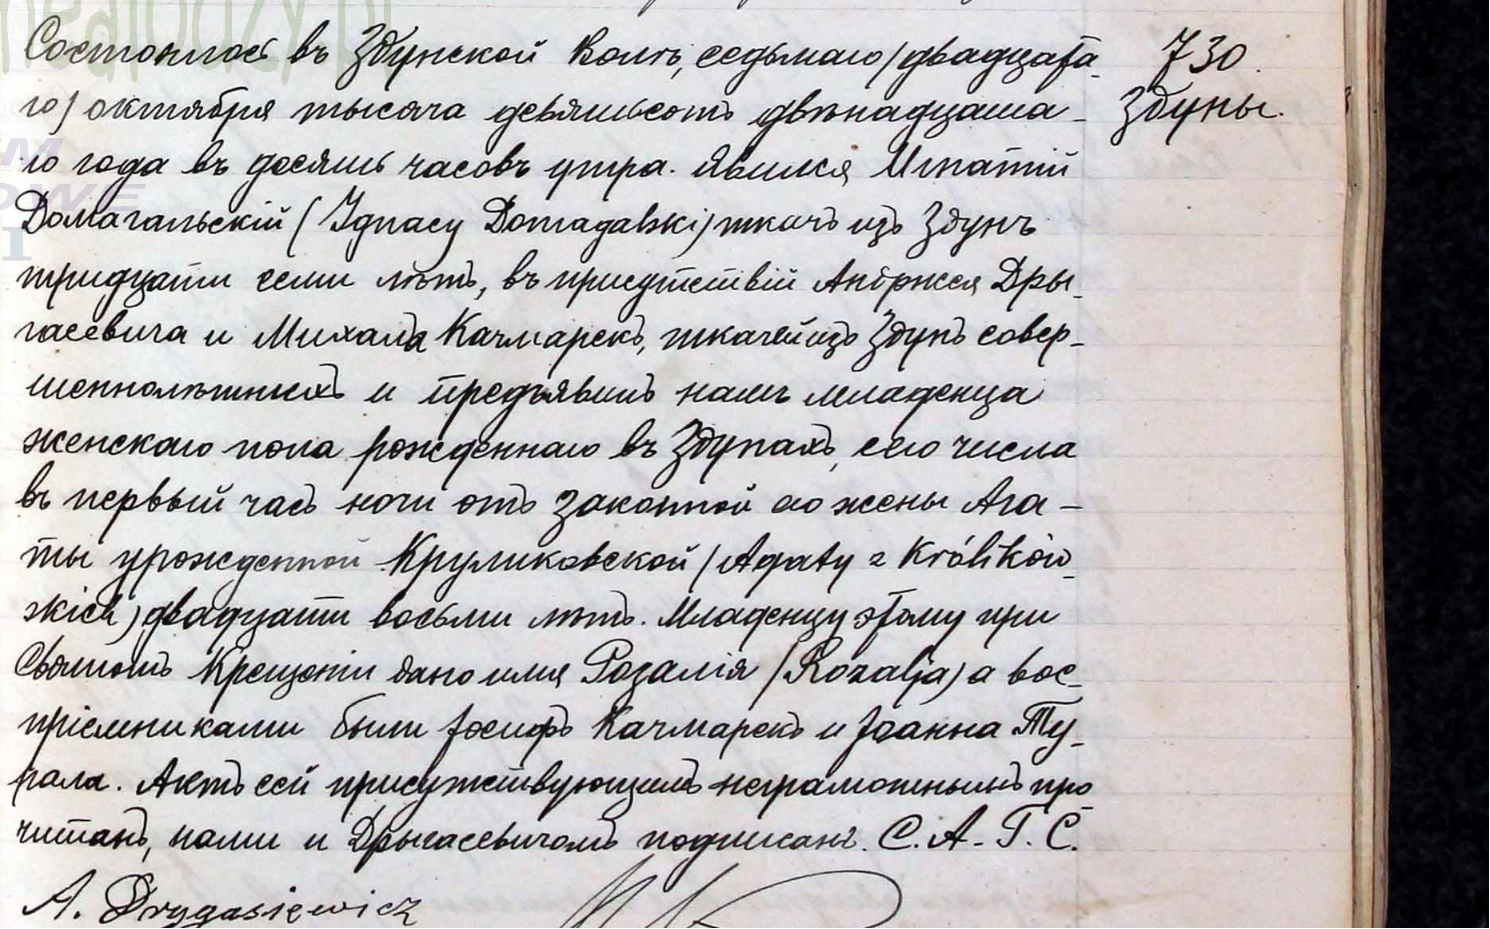 Состоялось въ Здунской Волѣ, седьмаго /двадцата-
го/ октября тысяча девятьсотъ двѣнадцата-
го года въ десять часовъ утра. Явился Игнатій
Домагальскій (Ignacy Domagalski) ткачъ изъ Здунъ
тридцати семи лѣтъ, въ присутствіи Андржея Дры-
гасевича и Михала Качмарекъ, ткачей изъ Здунъ совер-
шеннолѣтнихъ и предъявилъ намъ младенца
женскаго пола рожденнаго въ Здунахъ, сего числа
въ первый часъ ночи отъ законной его жены Ага-
ты урожденной Круликовской (Agaty z Królikow-
skich) двадцати восьми лѣтъ. Младенцу этому при
Святомъ Крещеніи дано имя Розалія (Rozalja) а вос-
пріемниками были Іосифъ Качмарекъ и Іоанна
Актъ сей присутствующимъ неграмотнымъ про
читанъ, нами и Дрыгасевичомъ подписанъ. С. А. Г. С.
A. Drygasiewicz
730
Здуны.